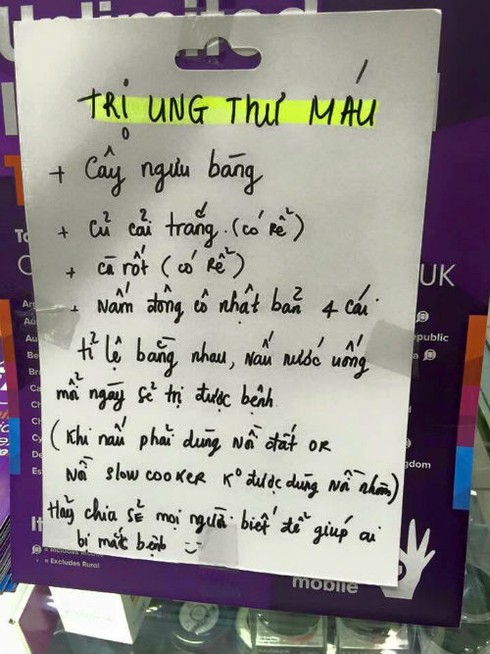 Unlimited
TRỊ UNG THƯ MÁU
+ Cây ngưu bàng
+ Củ cải trắng. (có Rể)
+ cà rốt (có Rể)
+ Nấm đông cô nhật bản 4 cái
tỉ lệ bằng nhau, nấu nước uống
mỗi ngày sẽ trị được bệnh
(Khi nấu phải dùng nồi đất OR
Nồi SLOW COOKER Kº được dùng nồi nhôm)
Hãy chia sẽ mọi người biết để giúp ai
bị mắc bệnh
UK
epublic
gdom
= Excludes Rural
mobile